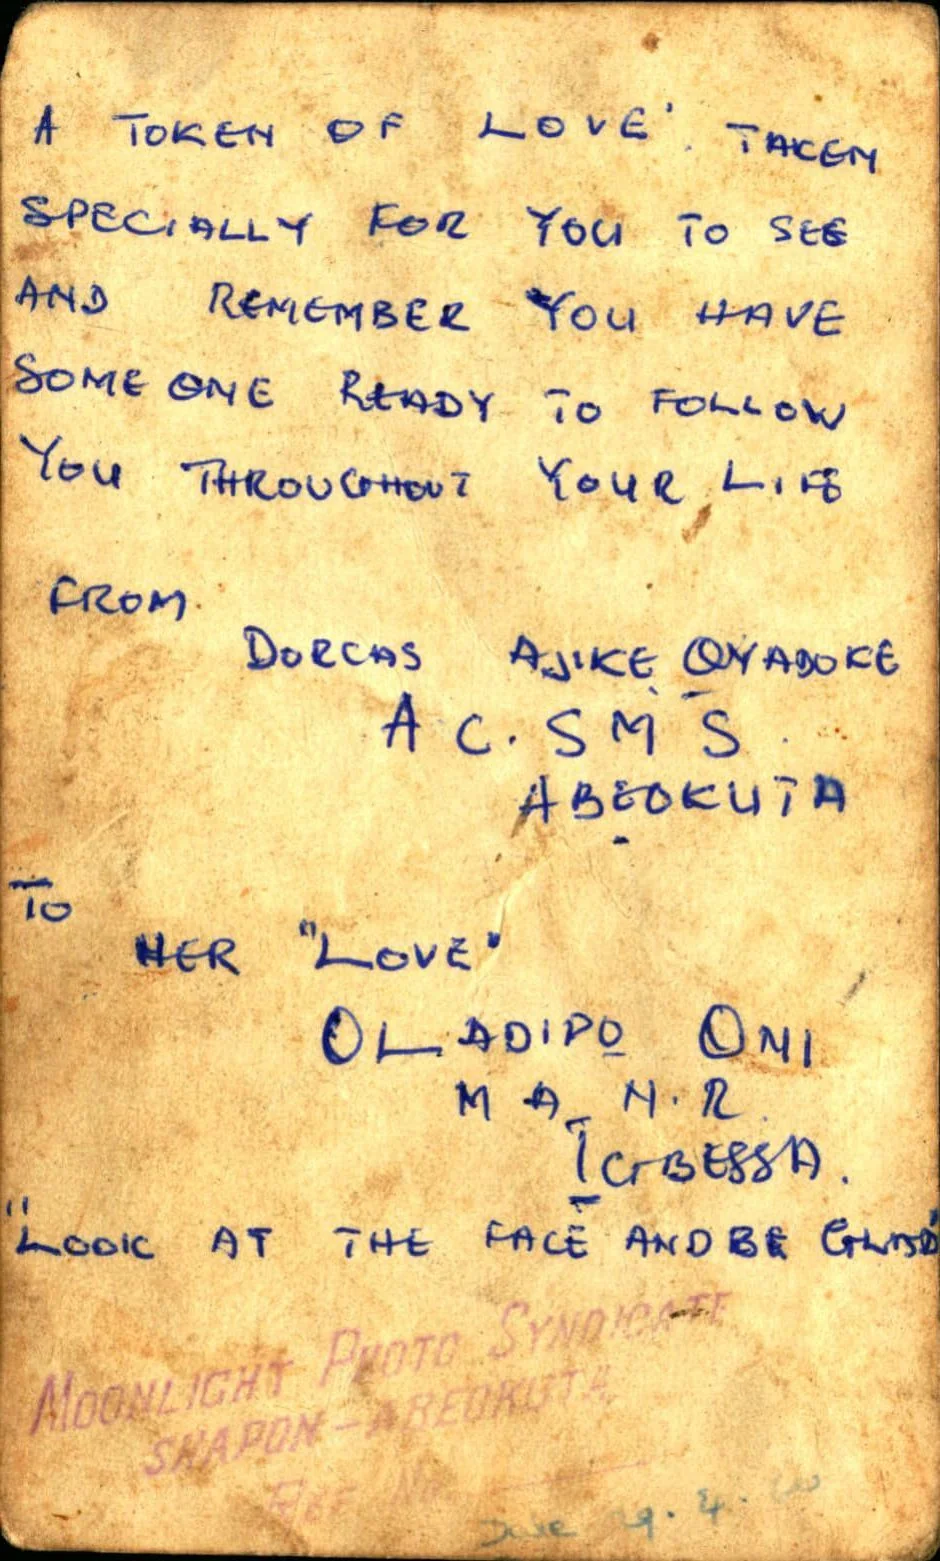 A TOKEN OF LOVE'. TAKEN
SPECIALLY FOR YOU TO SEE
AND REMEMBER YOU HAVE
SOMEONE READY TO FOLLOW
YOU THROUGHOUT YOUR LIFE
FROM
DORCAS AJIKE OYADOKE
A C. S M S.
ABEOKUTA
TO
HER "LOVE"
OLADIPO ONI
M A N. R.
IGBESSA.
"LOOK AT THE FACE AND BE GLAD"
MOONLIGHT PHOTO SYNDICATE
SHAPON - ABEOKUTA
REF. No.
Date 29. 4.